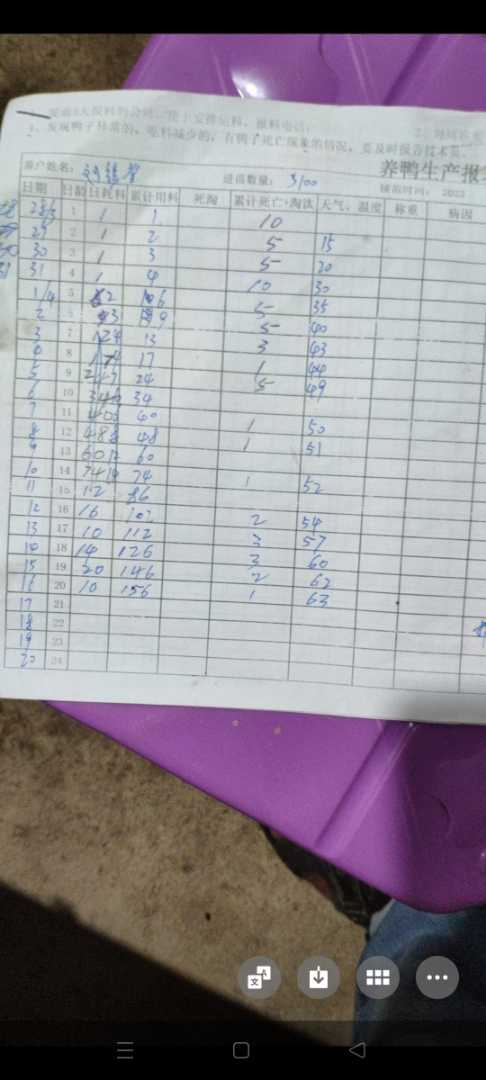 3、发现鸭子异常的，吃料减少的，有鸭子死亡现象的情况，要及时报告技术员。
养鸭生产报
养户姓名： 进苗数量：3100
日期 日龄 日耗料 累计用料 死淘 累计死亡+淘汰 天气、温度 称重 病因
1 1 1 10
29 2 1 2 5 15
30 3 1 3 5 20
31 4 1 4 10 30
1/4 5 2 6 5 35
2 6 3 9 5 40
3 7 4 13 3 43
4 8 4 17 1 44
5 9 7 24 5 49
6 10 34
7 11 40 1 50
8 12 48 1 51
9 13 60
10 14 74 1 52
11 15 12 86
12 16 16 102 2 54
13 17 10 112 3 57
14 18 14 126 3 60
15 19 20 146 2 62
16 20 10 156 1 63
17 21
18 22
19 23
20 24